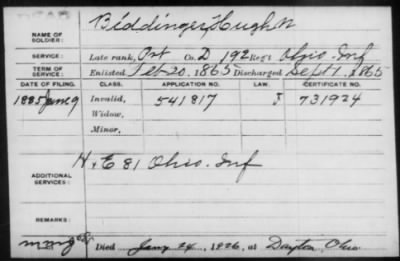 NAME OF SOLDIER: Biddinger, Hugh N
SERVICE: Late rank, Pvt Co. D, 192 Reg't Ohio. Inf
TERM OF SERVICE: Enlisted Feb. 20, 1865 Discharged Sept 1, 1865
DATE OF FILING. CLASS. APPLICATION NO. LAW. CERTIFICATE NO.
1885 June 9 Invalid, 541817 J 731924
Widow,
Minor,
ADDITIONAL SERVICES: H & E 81 Ohio. Inf
REMARKS:
Died Jany 24, 1926, at Dayton, Ohio